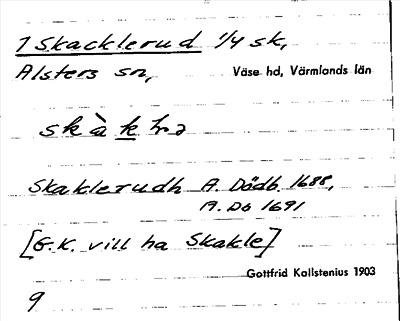 1 Skacklerud 1/4 sk,
Alsters sn, Väse hd, Värmlands län
skàklə
Skaklerudh A. Dödb. 1688,
A. Db 1691
[G.K. vill ha Skakle]
Gottfrid Kallstenius 1903
9